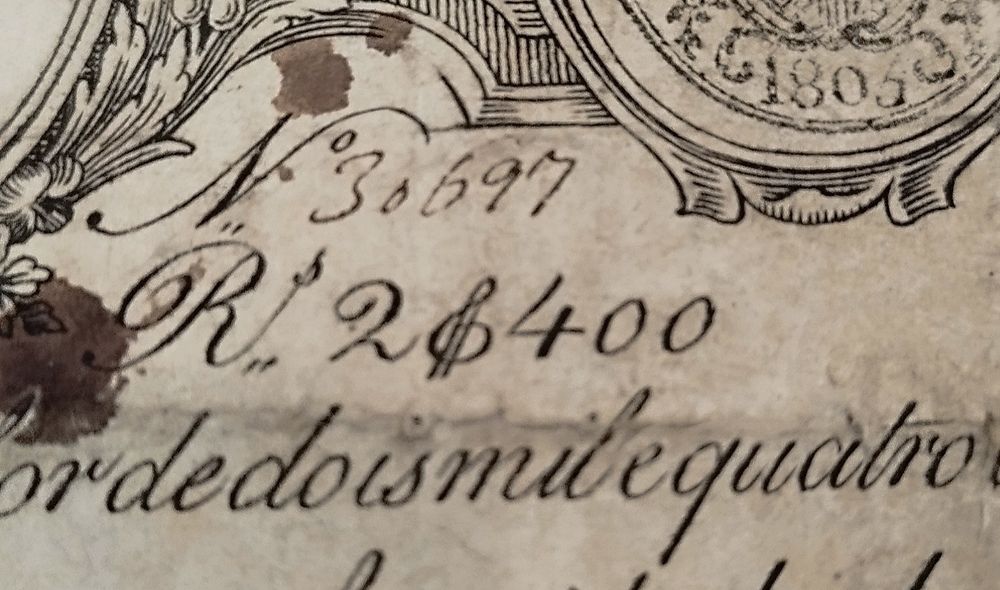 1805
N.º 30697
R.s 2$400
or de dois mil e quatro